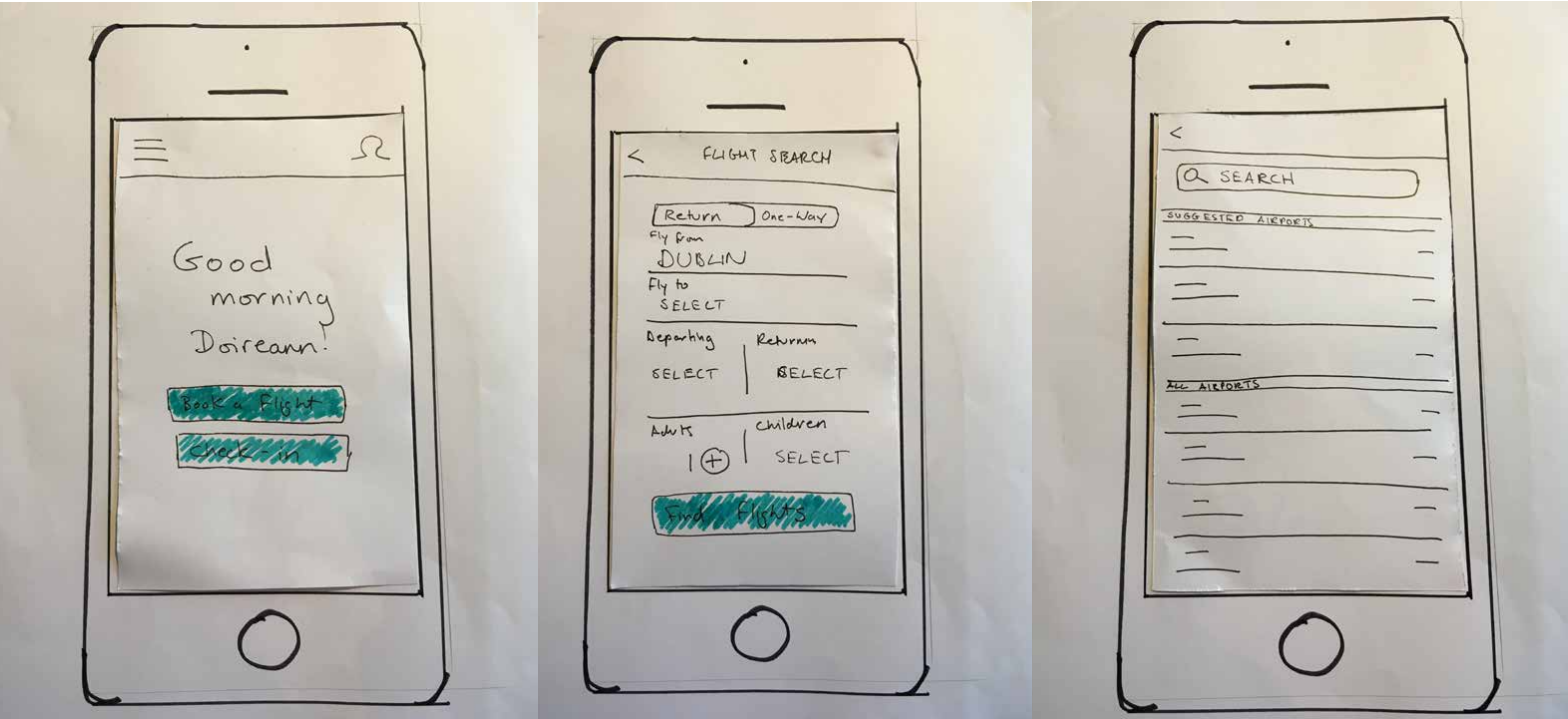 Good
morning
Doireann!
Book a Flight
Check-in
< FLIGHT SEARCH
Return One-Way
Fly from
DUBLIN
Fly to
SELECT
Departing Returnin
SELECT SELECT
Adults Children
1 + SELECT
Find Flights
<
SEARCH
SUGGESTED AIRPORTS
ALL AIRPORTS